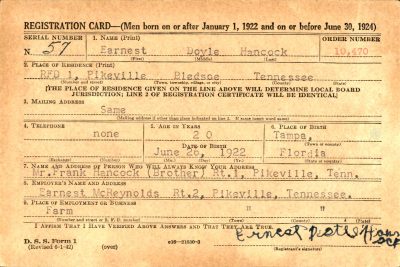 REGISTRATION CARD—(Men born on or after January 1, 1922 and on or before June 30, 1924)
SERIAL NUMBER 1. NAME (Print) ORDER NUMBER
N. 57 Earnest Doyle Hancock 10,470
(First) (Middle) (Last)
2. PLACE OF RESIDENCE (Print)
RFD 1, Pikeville Bledsoe Tennessee
(Number and street) (Town, township, village, or city) (County) (State)
(THE PLACE OF RESIDENCE GIVEN ON THE LINE ABOVE WILL DETERMINE LOCAL BOARD
JURISDICTION; LINE 2 OF REGISTRATION CERTIFICATE WILL BE IDENTICAL)
3. MAILING ADDRESS
Same
(Mailing address if other than place indicated on line 2. If same insert word same)
4. TELEPHONE 5. AGE IN YEARS 6. PLACE OF BIRTH
none 20 Tampa,
DATE OF BIRTH (Town or county)
June 26, 1922 Flordia
(Exchange) (Number) (Mo.) (Day) (Yr.) (State or country)
7. NAME AND ADDRESS OF PERSON WHO WILL ALWAYS KNOW YOUR ADDRESS
Mr. Frank Hancock (Brother) Rt.1, Pikeville, Tenn.
8. EMPLOYER'S NAME AND ADDRESS
Earnest McReynolds Rt.2, Pikeville, Tennessee.
9. PLACE OF EMPLOYMENT OR BUSINESS
Farm " "
(Number and street or R. F. D. number) (Town) (County) (State)
I AFFIRM THAT I HAVE VERIFIED ABOVE ANSWERS AND THAT THEY ARE TRUE.
D. S. S. Form 1
(Revised 6-1-42) (over) (Registrant's signature)
Ernest